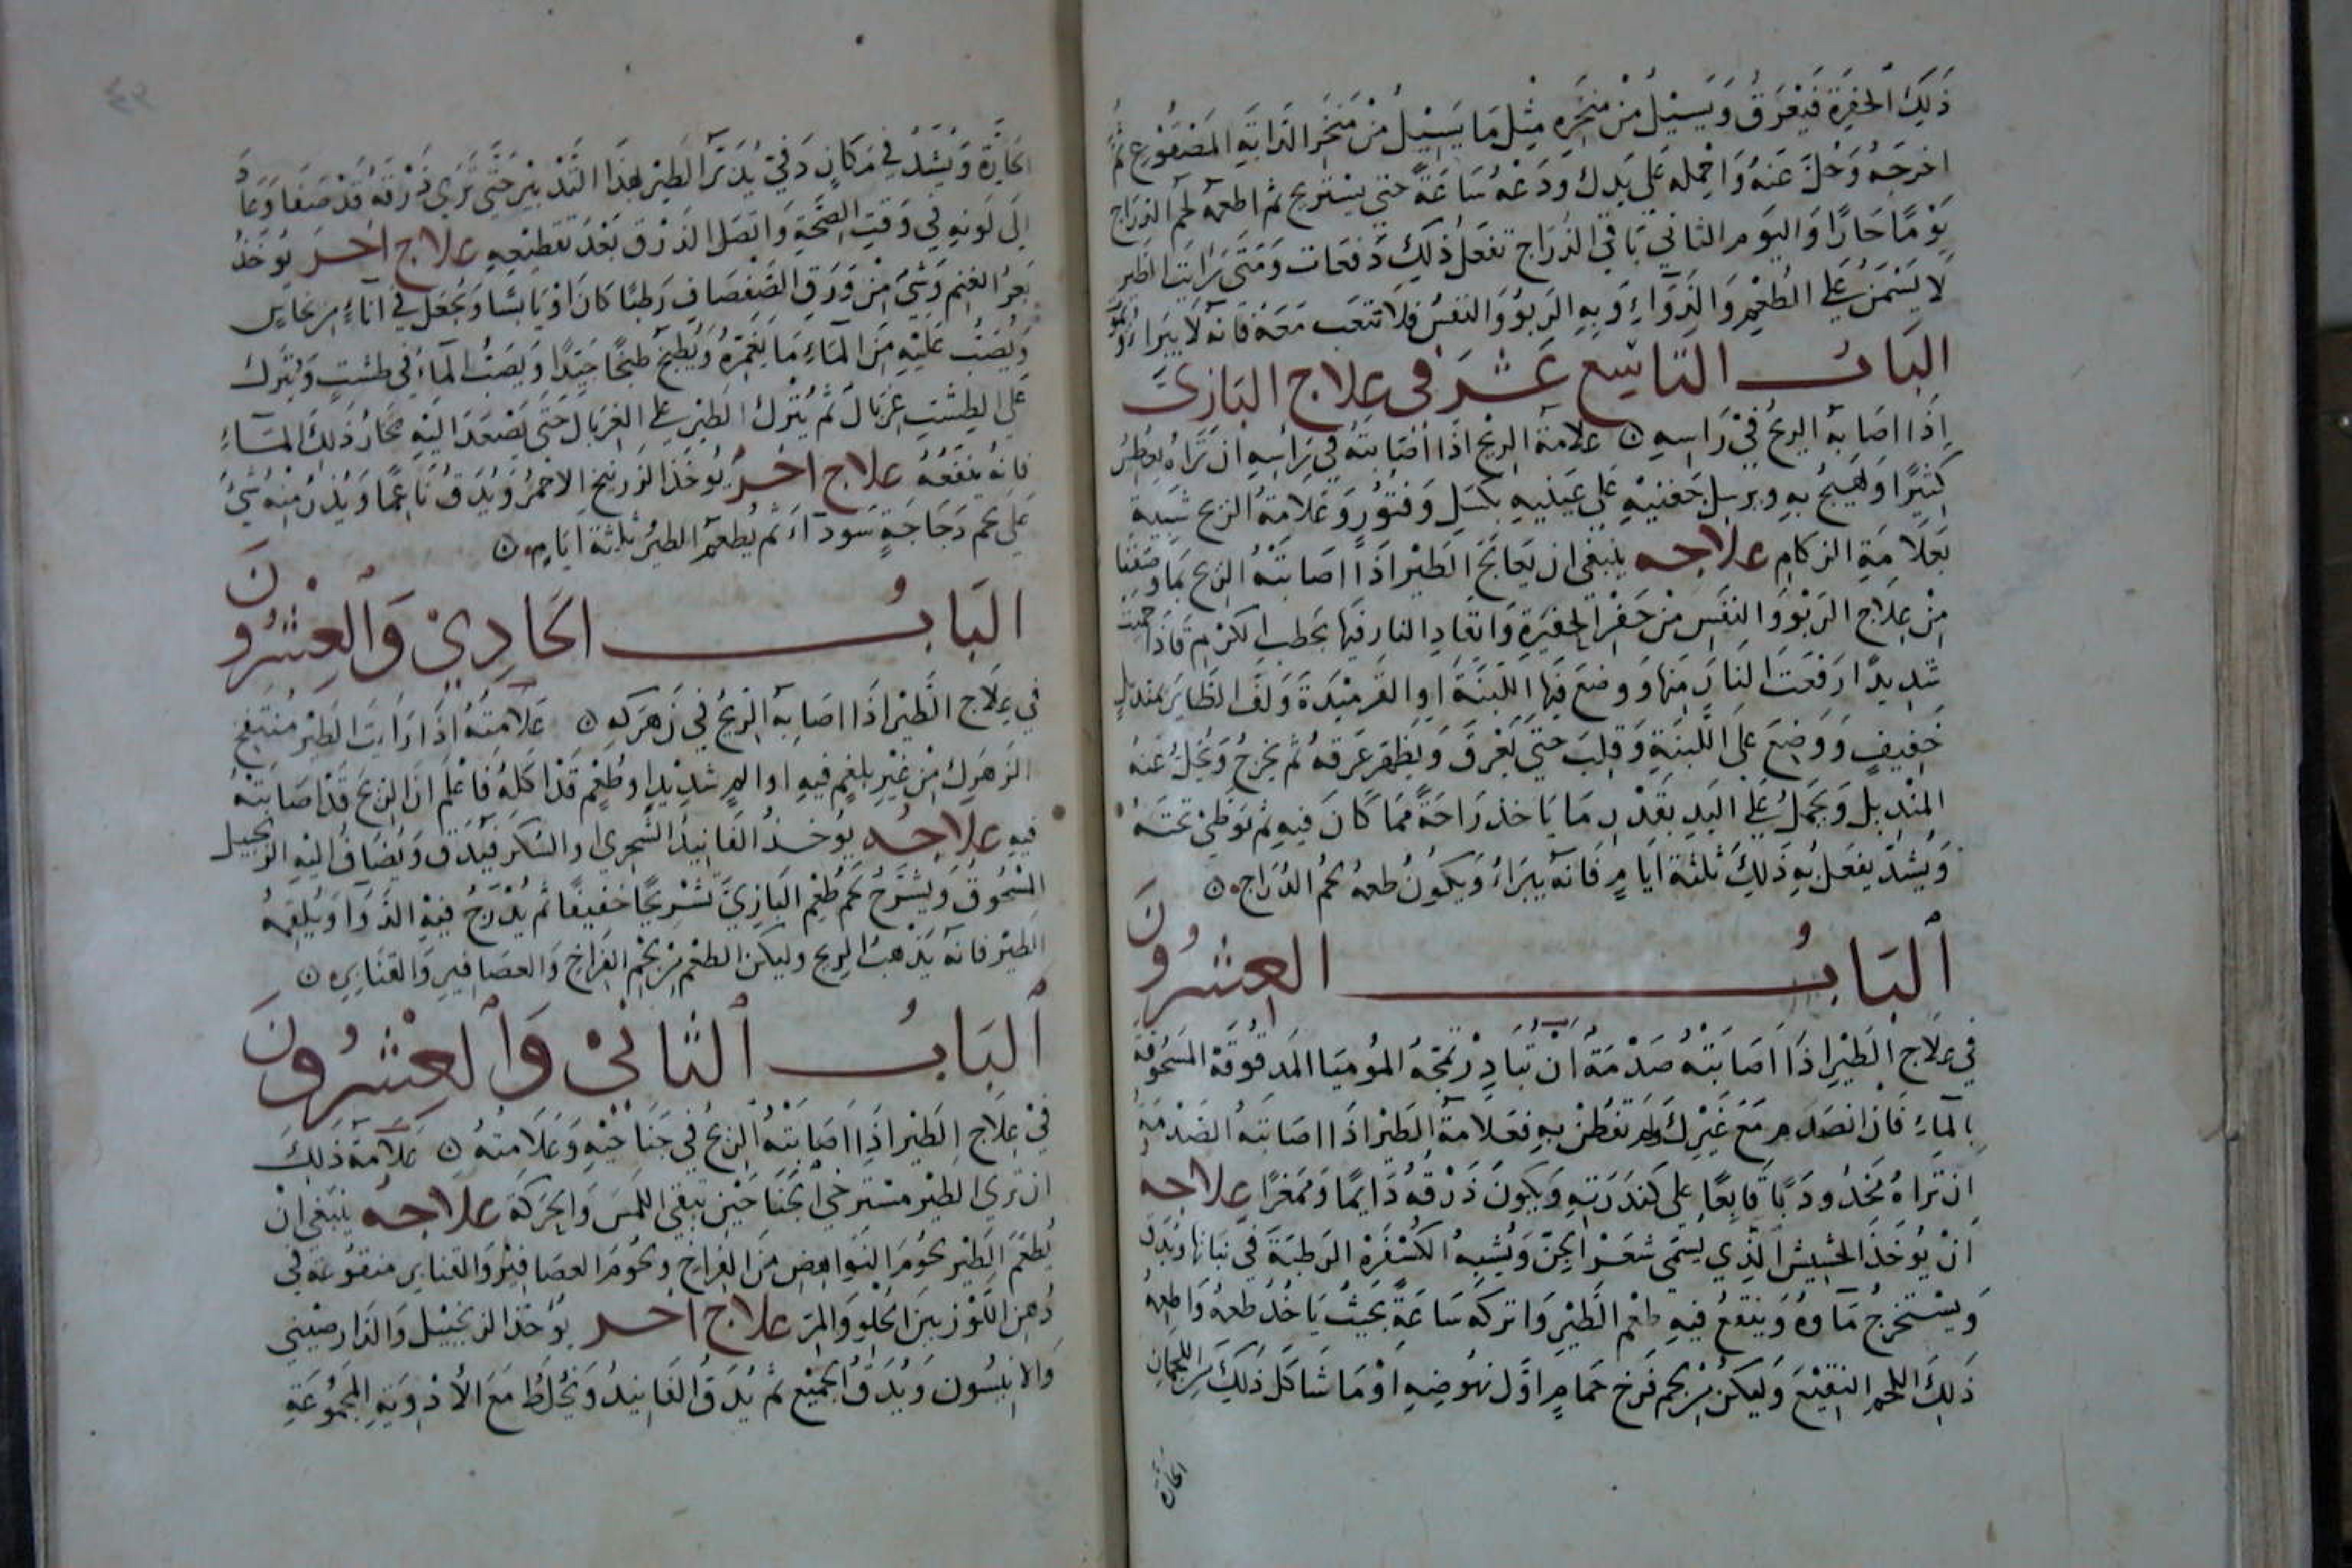 ذَلِكَ الحفِيرَة فَيَعْرَقُ وَيَسِيْلُ مِنْ مَنخَرِه مِثْل مَا يَسِيْلُ مِنْ مَنخَرِ الدَابَةِ المَصْدُوع ثُمَّ
اخرجهُ وَحُلَّ عَنهُ وَاحمله عَلَى يَدِكَ وَدَعْهُ سَاعَةً حَتى يستريح ثم اطعمه لحم الدرّاج
يَوْمًا حَارًا وَاليَوم الثاني بَاقي الدُرَّاج تفعَلُ ذلِكَ دَفعَات وَمَتَى رَايت الطَير
لَا يَسْمَنُ عَلى الطُعْمِ وَالدَوَآءِ وَبِهِ الرَبوُ وَالنَفَسُ فلا تتعَب مَعَهُ فَانهُ لا يَبرَاءُ
البَابُ التَاسِع عَشَرَ في عِلاج البَازِيَ
اِذَا اصَابهُ الريحُ فيْ رَاسِهِ ن علامَة الريْح اذَا اصَابَتهُ فِي رَاسِهِ ان تَرَاه يعطِسُ
كَثِيْرًا وَيَهِيجُ بهِ ويرسِل جَفنَيْهِ عَلى عَينيهِ بكَسَلٍ وَفتوُرٍ وَعَلامَةُ الريح شَبيهة
بعَلامَةِ الزكامِ علاجه ينبَغى ان يعَالجَ الطَيْر اذَا اصَابَتهُ الريح بمَا وصَفنَا
مِنْ عِلَاج الرَبْوِ وَالنَفَسِ مِنْ حَفْرِ الحَفِيرَةِ وَاتقادِ النار فيهَا بحَطب الكَرْمِ فَاذَا حميت
شَدِيدًا رَفعَتَ النَارَ مِنها وَوضِعَ فيهَا اللَبنَةَ اوِ القَرمِيْدَةَ وَلفَّ الطَايرَ بمنديلٍ
خَفيفٍ وَوَضِعَ عَلى اللَبنَةِ وَقلِبَ حَتّى يَعْرقَ وَيَظهَرَ عَرَقهُ ثمَّ يخرجُ وَيُحَلُّ عَنهُ
المنْدِيل وَيحمَلُ عَلي اليَدِ بقَدْرِ مَا يَاخذ رَاحَةً ممَا كَانَ فِيهِ ثم توَطّئ تحتهُ
وَيُشدّ يفعَلُ بهِ ذَلِكَ ثلثةَ ايَامٍ فَانهُ يبرَاءُ وَيكونُ طعمهُ لحمُ الدُرّاج ن
اَلبَابُ العِشرُونَ
في عِلَاجِ الطَيْرِ اذَا اصَابَتهُ صَدْمَةُ انْ تُبَادِرْ تمجّهُ المُوميَا المَدقُوقَة المَسحُوقَة
بِالمآءِ فَان انصَدَمَ مَعَ غَيْرِكَ وَلم تفطُنْ بهِ فعَلامَةُ الطَيْر اذَا اصَابَتهُ الصَدْمَة
ان ترَاهُ وَدَبَّا قَابعًا عَلى كَندرَتهِ وَيكونَ ذَرْقهُ دَايمًا وَممغرًا علاجه
اَنْ يُؤخَذَ الحَشِيشُ الَذي يُسَمّى شَعَرْ الجِنّ وَيُشبهُ الكُسْفَرَه الرَطبَةَ في نباتها وَيُدَق
وَيسْتخرجُ مَآوهُ وَينقَعُ فيهِ طعْم الطَيْرِ وَاتركهُ سَاعَةً بحَيثُ يَاخُذ طعمهُ وَاطعِمهُ
ذَلِكَ اللحمِ النقِيْعَ وَليَكنْ مِنْ لحمِ فَرخ حَمامٍ اوَّل نهُوضِهِ اوْمَا شَاكَلَ ذَلِكَ مِنَ اللحمان
الحارة
الحَارَّة وَيُشَدّ في مَكانٍ دَفيْ يُدَبّر الطَيْر بهَذَا التَدْبيْرِ حَتّى تَرى ذَرْقهُ قدْ صَفَا وَعَادَ
اِلى لَونهِ في وَقتِ الصِّحَّةِ وَاتصَل الذَرْق بَعْدَ تقطِيعِهِ علاج اخر يُوخَذُ
بَعرُ الغنم وَشَيءٌ مِنْ وَرَقِ الصَفصَافِ رَطبًا كَانَ اوْ يَابسًا وَيجعَل فيْ انَآءٍ مِنْ نحَاس
وَيُصَبّ عَلَيْهِ مِنَ المآءِ مَا يَغمرُهُ وَيُطبَخ طبخًا جَيّدًا وَيصَبُّ المآءُ في طشتٍ وَيُترَك
عَلَى الطِشتِ غِربَال ثم يُتْرَك الطَيْر على الغربَال حَتّى يَصْعَدَ اليْهِ بخَارُ ذَلِكَ المآءِ
فَانهُ ينفَعُهُ علاج اخر يُوخَذَ الزرنيخ الاحْمَرُ وَيُدَقُّ نَاعمًا وَيُذَرُّ مِنهُ شيءٌ
عَلى لحم دَجَاجَةٍ سَودآءَ ثم يُطعَم الطَيْرُ ثلثةَ ايَامٍ ن
البَابُ الحَادِيْ وَالعِشرُونَ
في عِلَاج الطَيْر اذَا اصَابهُ الريْحُ في زَهرَكهِ ن عَلامَتهُ اذَا رَايتَ الطَيْر مُنتفخ
الزهرك مِنْ غيْر بلغمٍ فيهِ او المٍ شَدِيدٍ وَطُعْمٍ قَدْ اكَلهُ فَاعْلم انَّ الريح قَدْ اصَابَتْهُ
فِيهِ علاجُه يُوخَذُ الفَانيذُ الشجري او السُكر فَيُدَق وَيُضَاف اليْهِ الزنجبيل
المَسْحُوقُ وَيُشرّحُ لحم طُعْمِ البَازيَّ تشرِيحًا خَفيفًا ثم يُدْرَجُ فيهِ الدَوَا وَيُلقمهُ
الطَيْر فَانهُ يَذهبُ الريح وليكن الطعْم مِنْ لحم الفرَاخ وَالعصَافير وَالقنَابر ن
اَلبَابُ اَلثَانيْ وَاَلعِشْرُونَ
فيْ عِلَاجِ الطَيْر اذَا اصَابَتهُ الريحُ في جَناحَيْهِ وَعَلَامتهُ ن عَلَامَة ذَلِكَ
ان ترَى الطَيْر مسْتَرخي الجَنَاحَيْن تبقي اللمسَ وَالحَرَكَة علاجه ينبَغي انْ
يُطعَمَ الطَيْر لحوُمَ النَوَاهِضِ مِنَ الفرَاخ وَلحُومَ العصَافِيْر وَالقنابر منقوُعَة في
دُهنِ اللَوْز بَينَ الحُلْو وَالمُرّ علاج اخر يُؤخَذ الزنجبيْل وَالدَارصيْني
وَالانيسُون وَيُدَقُ الجَمِيْع ثم يُدَقُ الفَانيذُ وَيُخلَطُ مَعَ الأدْوِيَةِ المَجمُوُعَةِ